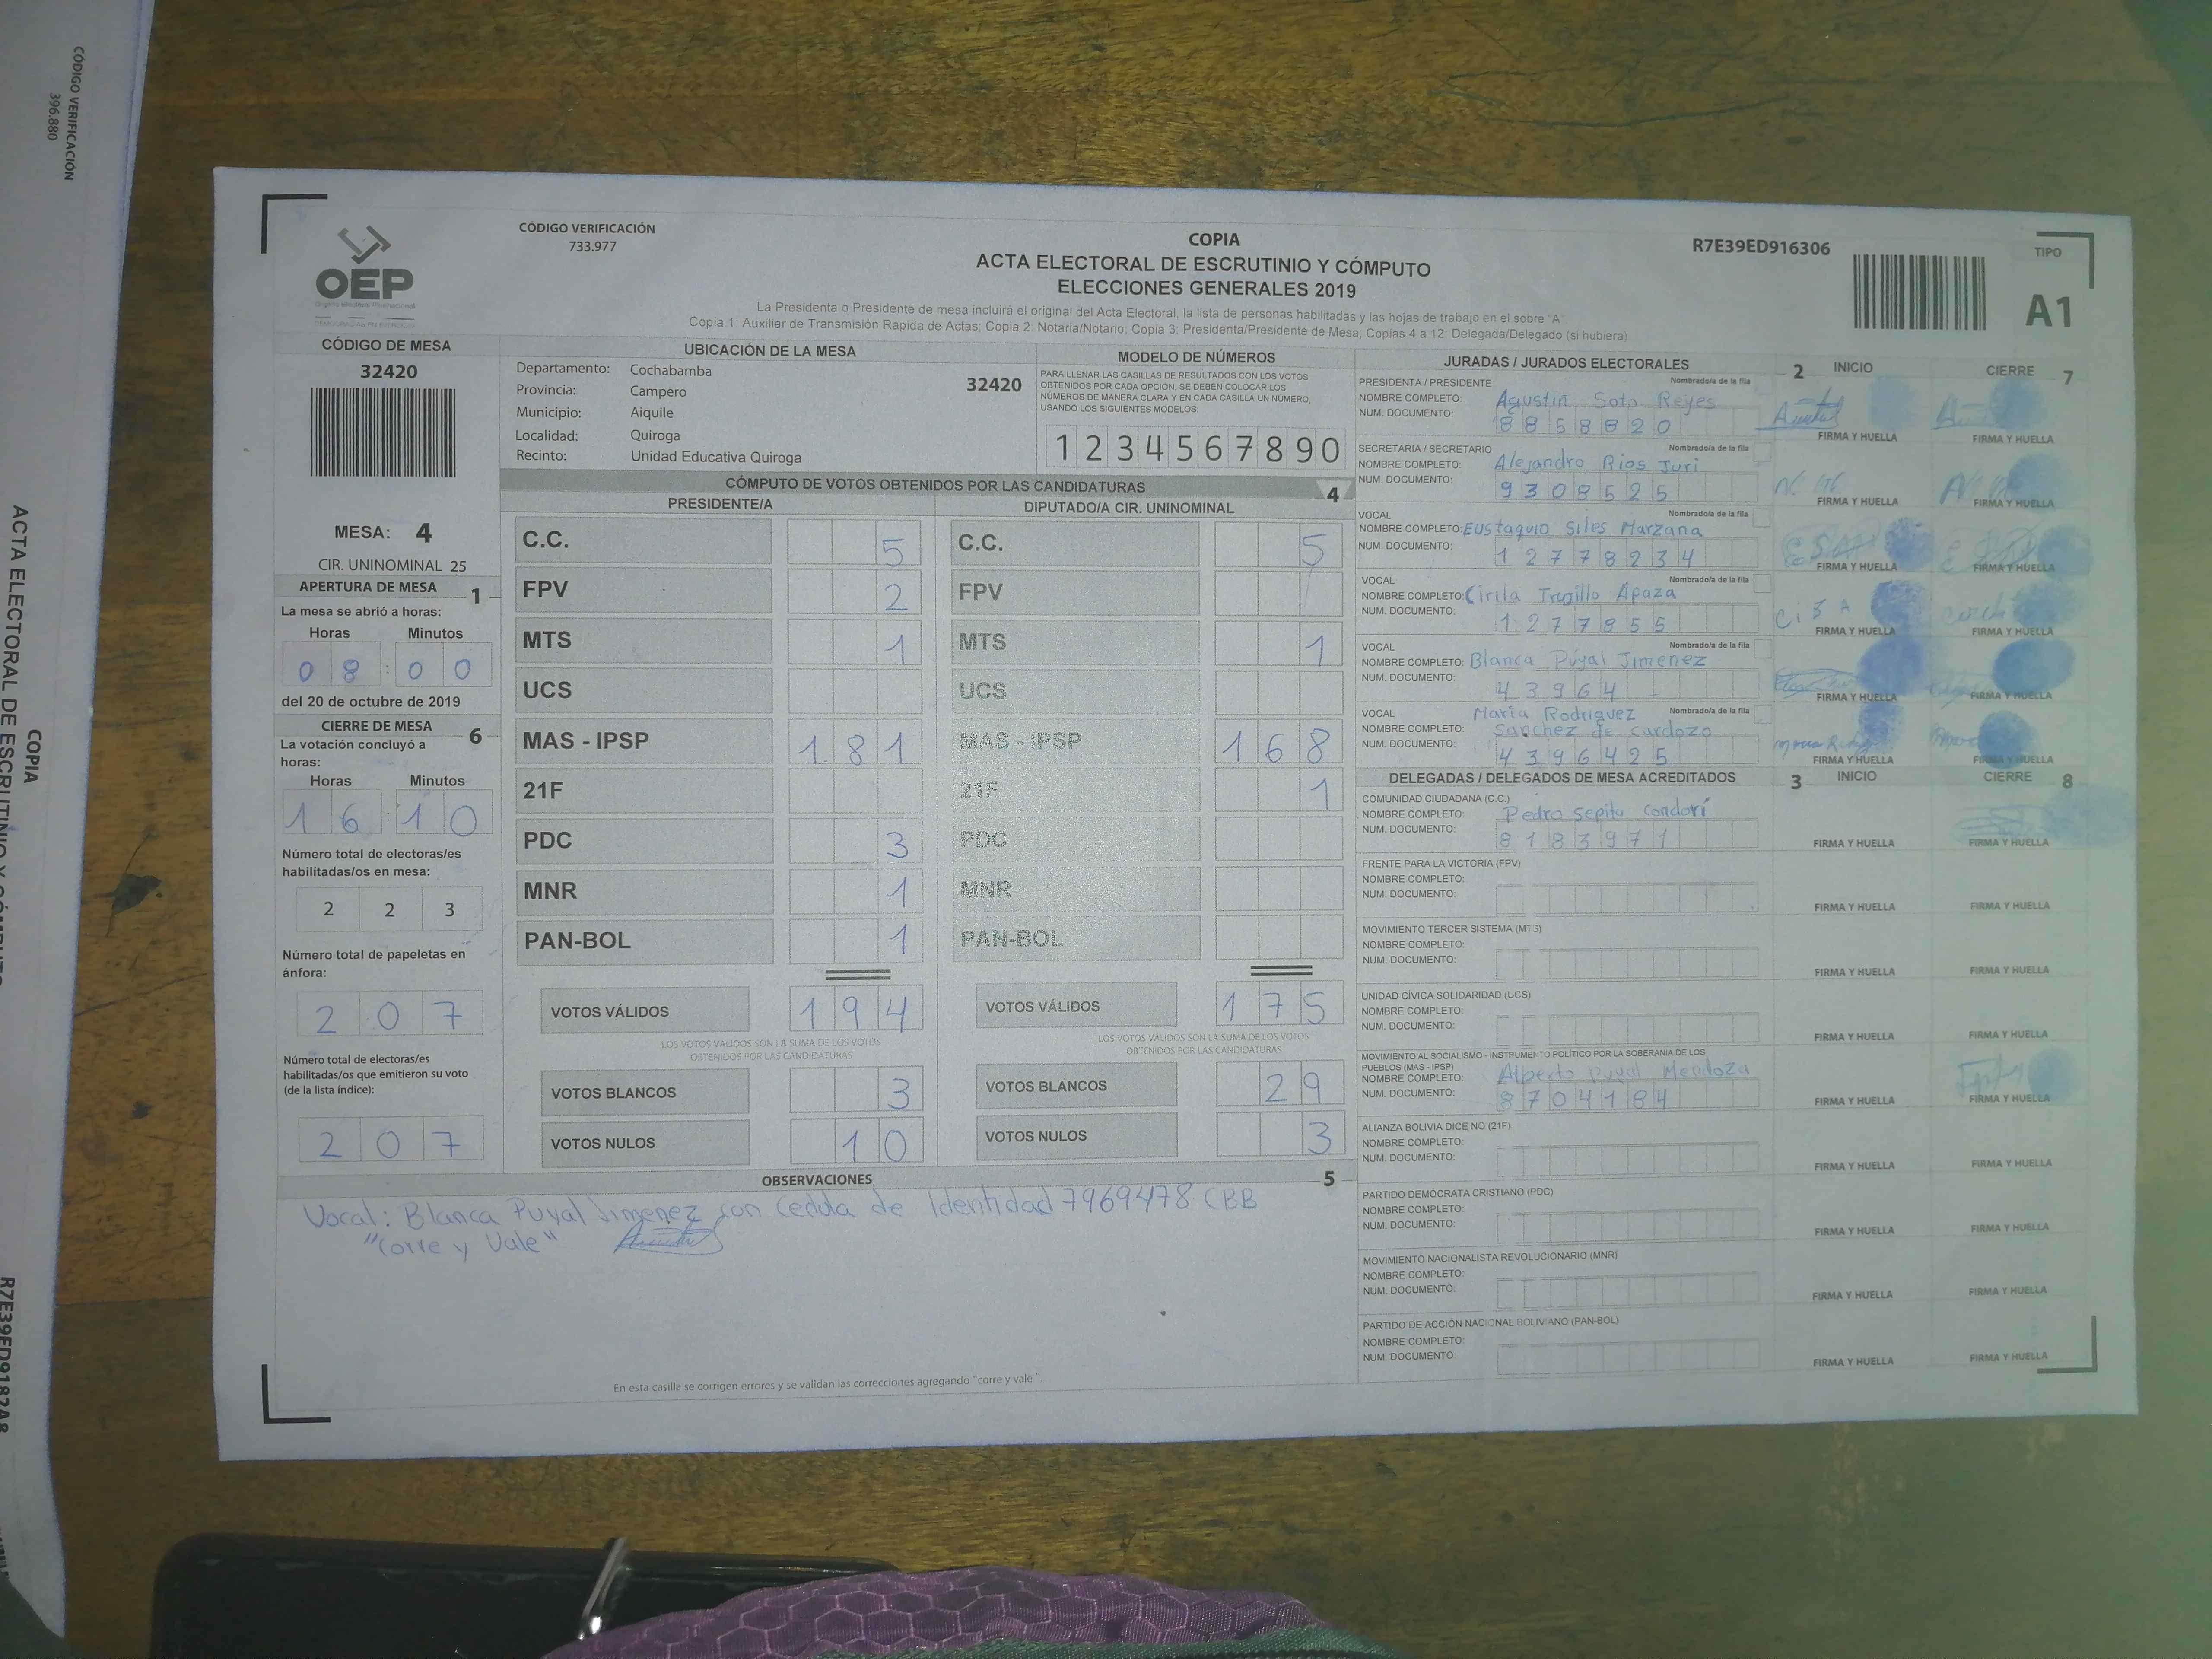 CÓDIGO VERIFICACIÓN
396.880
COPIA
ACTA ELECTORAL DE ESCRUTINIO Y CÓMPUTO
R7E39ED9182A8
OEP
CÓDIGO VERIFICACIÓN
733.977
COPIA
ACTA ELECTORAL DE ESCRUTINIO Y CÓMPUTO
ELECCIONES GENERALES 2019
La Presidenta o Presidente de mesa incluirá el original del Acta Electoral, la lista de personas habilitadas y las hojas de trabajo en el sobre "A"
Copia 1: Auxiliar de Transmisión Rapida de Actas; Copia 2: Notaria/Notario; Copia 3: Presidenta/Presidente de Mesa; Copias 4 a 12: Delegada/Delegado (si hubiera)
R7E39ED916306
TIPO
A1
CÓDIGO DE MESA
32420
MESA: 4
CIR. UNINOMINAL 25
APERTURA DE MESA 1
La mesa se abrió a horas:
Horas Minutos
08:00
del 20 de octubre de 2019
CIERRE DE MESA 6
La votación concluyó a
horas:
Horas Minutos
16:10
Número total de electoras/es
habilitadas/os en mesa:
2 2 3
Número total de papeletas en
ánfora:
2 0 7
Número total de electoras/es
habilitadas/os que emitieron su voto
(de la lista índice):
2 0 7
UBICACIÓN DE LA MESA
Departamento: Cochabamba
Provincia: Campero
Municipio: Aiquile
Localidad: Quiroga
Recinto: Unidad Educativa Quiroga
32420
MODELO DE NÚMEROS
PARA LLENAR LAS CASILLAS DE RESULTADOS CON LOS VOTOS
OBTENIDOS POR CADA OPCIÓN, SE DEBEN COLOCAR LOS
NÚMEROS DE MANERA CLARA Y EN CADA CASILLA UN NÚMERO,
USANDO LOS SIGUIENTES MODELOS:
1 2 3 4 5 6 7 8 9 0
CÓMPUTO DE VOTOS OBTENIDOS POR LAS CANDIDATURAS 4
PRESIDENTE/A DIPUTADO/A CIR. UNINOMINAL
C.C. 5 C.C. 5
FPV 2 FPV
MTS 1 MTS 1
UCS UCS
MAS - IPSP 181 MAS - IPSP 168
21F 21F 1
PDC 3 PDC
MNR 1 MNR
PAN-BOL 1 PAN-BOL
VOTOS VÁLIDOS 194 VOTOS VÁLIDOS 175
LOS VOTOS VÁLIDOS SON LA SUMA DE LOS VOTOS LOS VOTOS VÁLIDOS SON LA SUMA DE LOS VOTOS
OBTENIDOS POR LAS CANDIDATURAS OBTENIDOS POR LAS CANDIDATURAS
VOTOS BLANCOS 3 VOTOS BLANCOS 29
VOTOS NULOS 10 VOTOS NULOS 3
OBSERVACIONES 5
Vocal: Blanca Puyal Jimenez con Cedula de Identidad 7969478 CBB
"Corre y Vale"
En esta casilla se corrigen errores y se validan las correcciones agregando "corre y vale ".
JURADAS / JURADOS ELECTORALES 2 INICIO CIERRE 7
PRESIDENTA / PRESIDENTE Nombrado/a de la fila
NOMBRE COMPLETO: Agustin Soto Reyes
NUM. DOCUMENTO: 8858820
FIRMA Y HUELLA FIRMA Y HUELLA
SECRETARIA / SECRETARIO Nombrado/a de la fila
NOMBRE COMPLETO: Alejandro Rios Juri
NUM. DOCUMENTO: 9308525
FIRMA Y HUELLA FIRMA Y HUELLA
VOCAL Nombrado/a de la fila
NOMBRE COMPLETO: Eustaquio Siles Marzana
NUM. DOCUMENTO: 12778234
FIRMA Y HUELLA FIRMA Y HUELLA
VOCAL Nombrado/a de la fila
NOMBRE COMPLETO: Cirila Trujillo Apaza
NUM. DOCUMENTO: 1277855
FIRMA Y HUELLA FIRMA Y HUELLA
VOCAL Nombrado/a de la fila
NOMBRE COMPLETO: Blanca Puyal Jimenez
NUM. DOCUMENTO: 43964
FIRMA Y HUELLA FIRMA Y HUELLA
VOCAL Maria Rodriguez Nombrado/a de la fila
NOMBRE COMPLETO: Sanchez de cardozo
NUM. DOCUMENTO: 4396425
FIRMA Y HUELLA FIRMA Y HUELLA
DELEGADAS / DELEGADOS DE MESA ACREDITADOS 3 INICIO CIERRE 8
COMUNIDAD CIUDADANA (C.C.)
NOMBRE COMPLETO: Pedro Sepita Condorí
NUM. DOCUMENTO: 8183971
FIRMA Y HUELLA FIRMA Y HUELLA
FRENTE PARA LA VICTORIA (FPV)
NOMBRE COMPLETO:
NUM. DOCUMENTO:
FIRMA Y HUELLA FIRMA Y HUELLA
MOVIMIENTO TERCER SISTEMA (MTS)
NOMBRE COMPLETO:
NUM. DOCUMENTO:
FIRMA Y HUELLA FIRMA Y HUELLA
UNIDAD CÍVICA SOLIDARIDAD (UCS)
NOMBRE COMPLETO:
NUM. DOCUMENTO:
FIRMA Y HUELLA FIRMA Y HUELLA
MOVIMIENTO AL SOCIALISMO - INSTRUMENTO POLÍTICO POR LA SOBERANÍA DE LOS
PUEBLOS (MAS - IPSP)
NOMBRE COMPLETO: Alberto Puyal Mendoza
NUM. DOCUMENTO: 8704184
FIRMA Y HUELLA FIRMA Y HUELLA
ALIANZA BOLIVIA DICE NO (21F)
NOMBRE COMPLETO:
NUM. DOCUMENTO:
FIRMA Y HUELLA FIRMA Y HUELLA
PARTIDO DEMÓCRATA CRISTIANO (PDC)
NOMBRE COMPLETO:
NUM. DOCUMENTO:
FIRMA Y HUELLA FIRMA Y HUELLA
MOVIMIENTO NACIONALISTA REVOLUCIONARIO (MNR)
NOMBRE COMPLETO:
NUM. DOCUMENTO:
FIRMA Y HUELLA FIRMA Y HUELLA
PARTIDO DE ACCIÓN NACIONAL BOLIVIANO (PAN-BOL)
NOMBRE COMPLETO:
NUM. DOCUMENTO:
FIRMA Y HUELLA FIRMA Y HUELLA